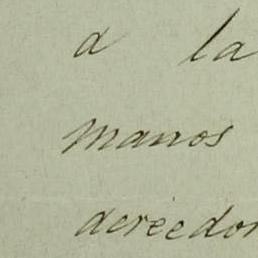 a la
manos
acreedor